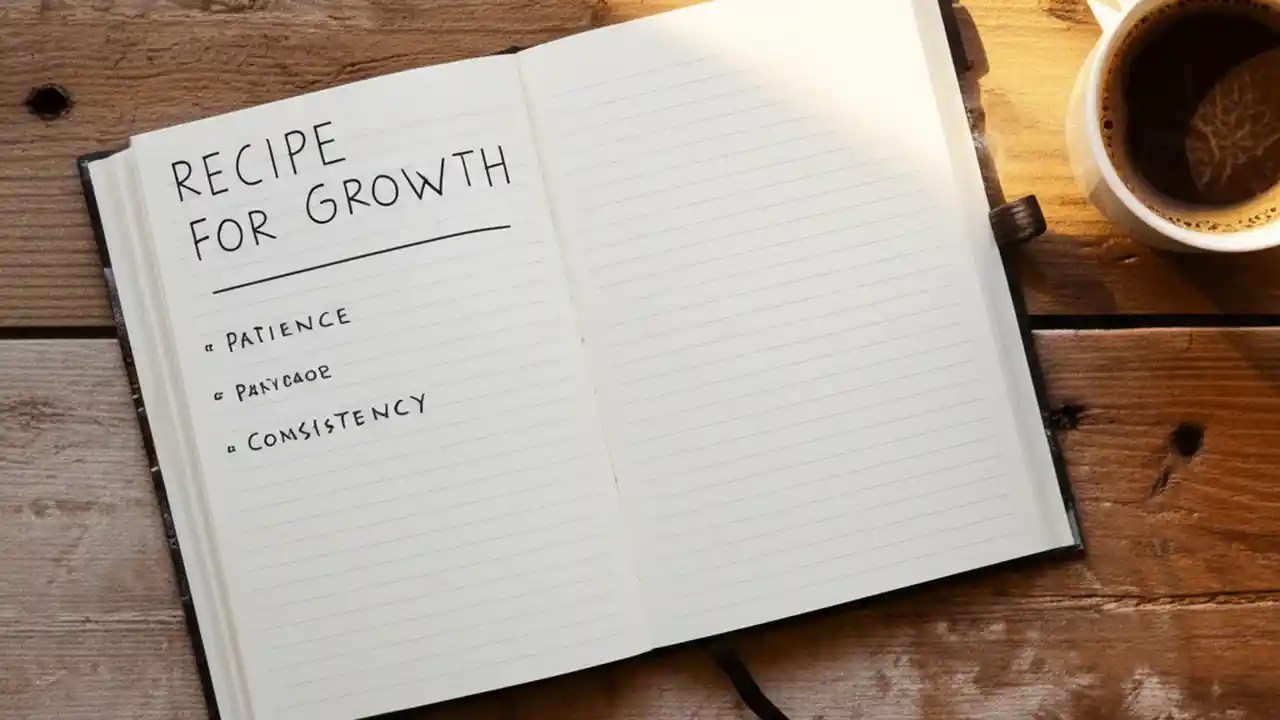 RECIPE
FOR GROWTH
PATIENCE
CONSISTENCY